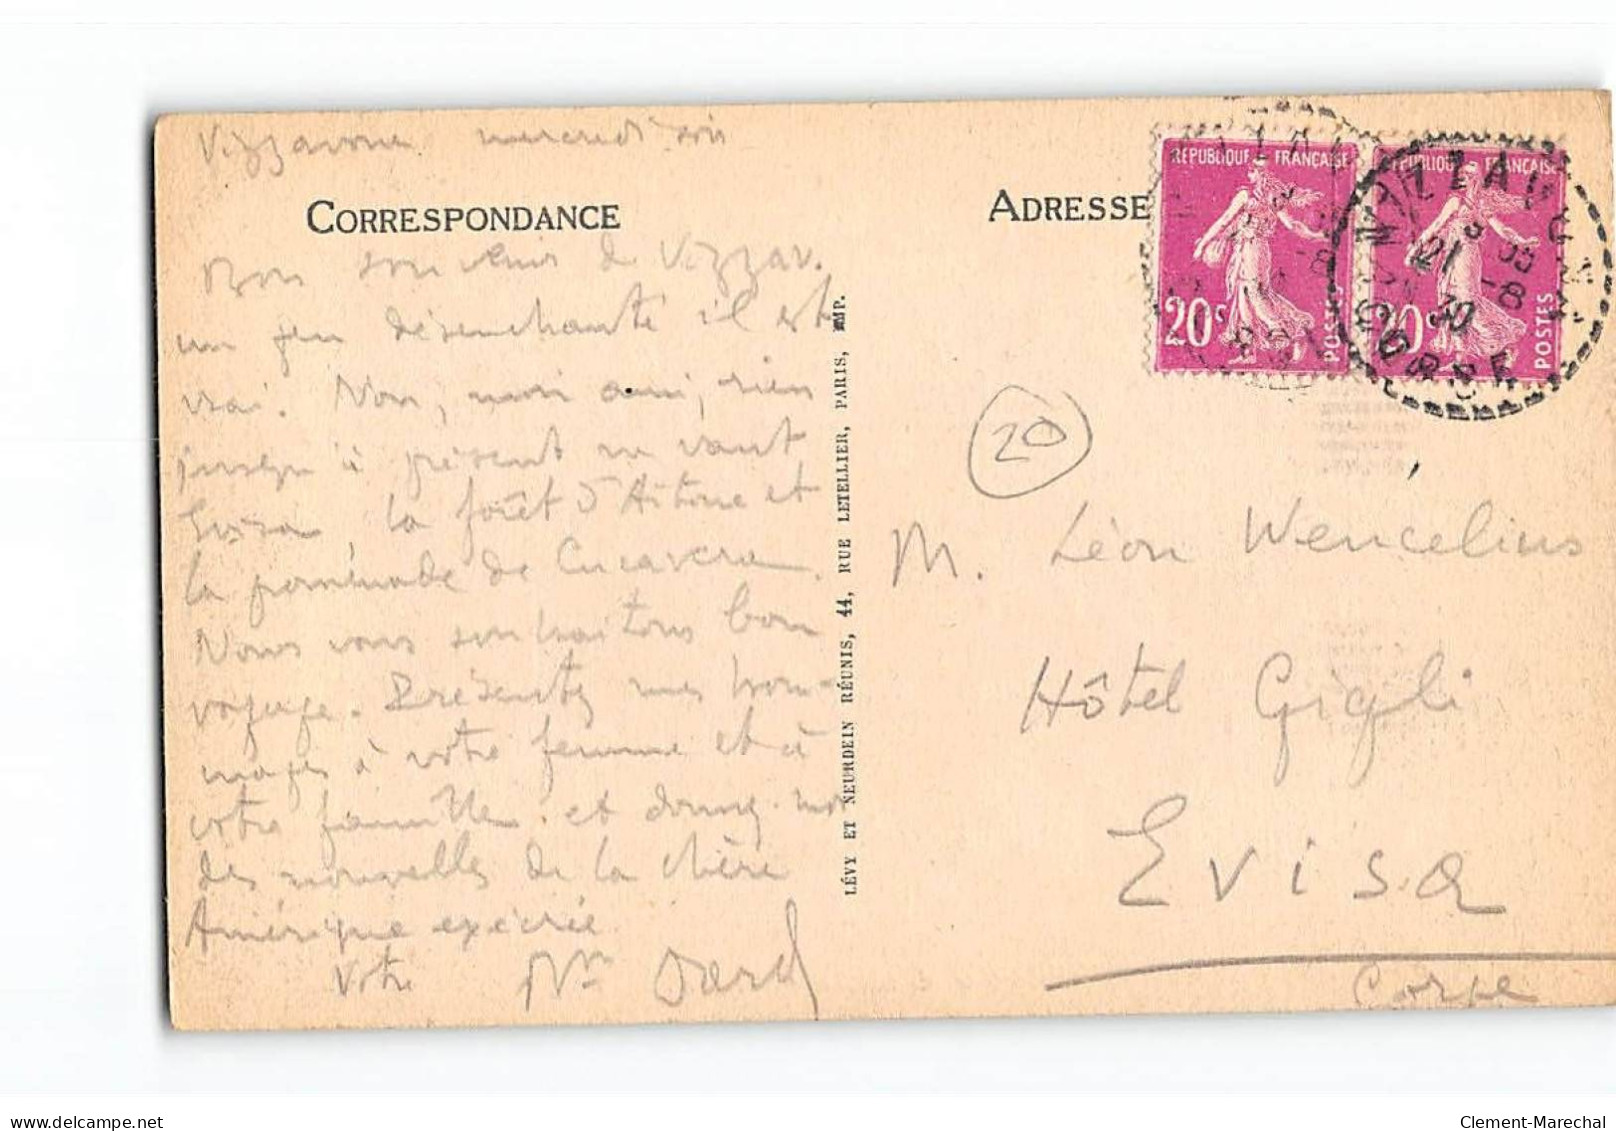 Vizzavone mercredi soir
CORRESPONDANCE
Bon souvenir de Vizzav.
un peu désenchanté il est
vrai. Non, mon ami, rien
jusqu'à présent ne vaut
Evisa, la forêt d'Aïtone et
la promenade de Cucavera.
Nous vous souhaitons bon
voyage. Présentez mes hom-
mages à votre femme et à
votre famille et donnez-moi
des nouvelles de la chère
Amérique exécrée.
Votre Dard
LÉVY ET NEURDEIN RÉUNIS, 44, RUE LETELLIER, PARIS, IMP.
ADRESSE
REPUBLIQUE FRANÇAISE
20c POSTES
REPUBLIQUE FRANÇAISE
20c POSTES
VIZZAVONA
21 -8 30
CORSE
20
M. Léon Wencelius
Hôtel Gigli
Evisa
Corse
delcampe.net
Clement-Marechal